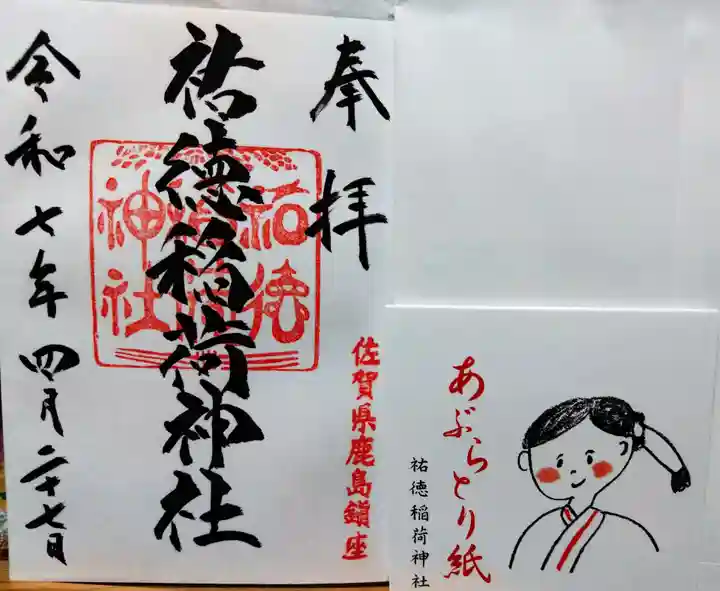 奉拝
祐徳稲荷神社
祐徳
稲荷
神社
佐賀県鹿島鎮座
令和七年四月二十七日
あぶらとり紙
祐徳稲荷神社